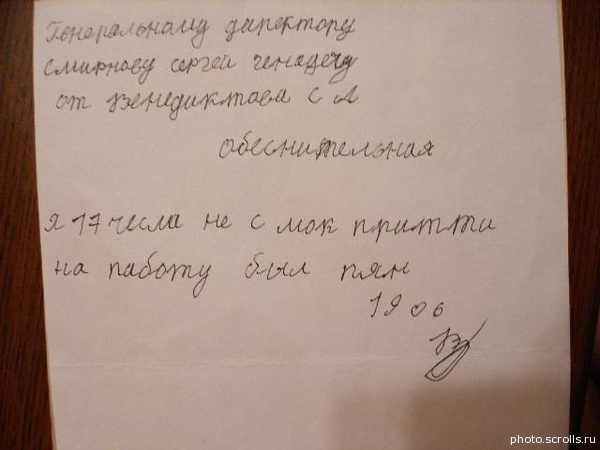 Генеральному директору
смирнову сергей генадечу
от Венедиктова С А
обеснительная
я 17 числа не с мок притти
на работу был пян
19 06
photo.scrolls.ru